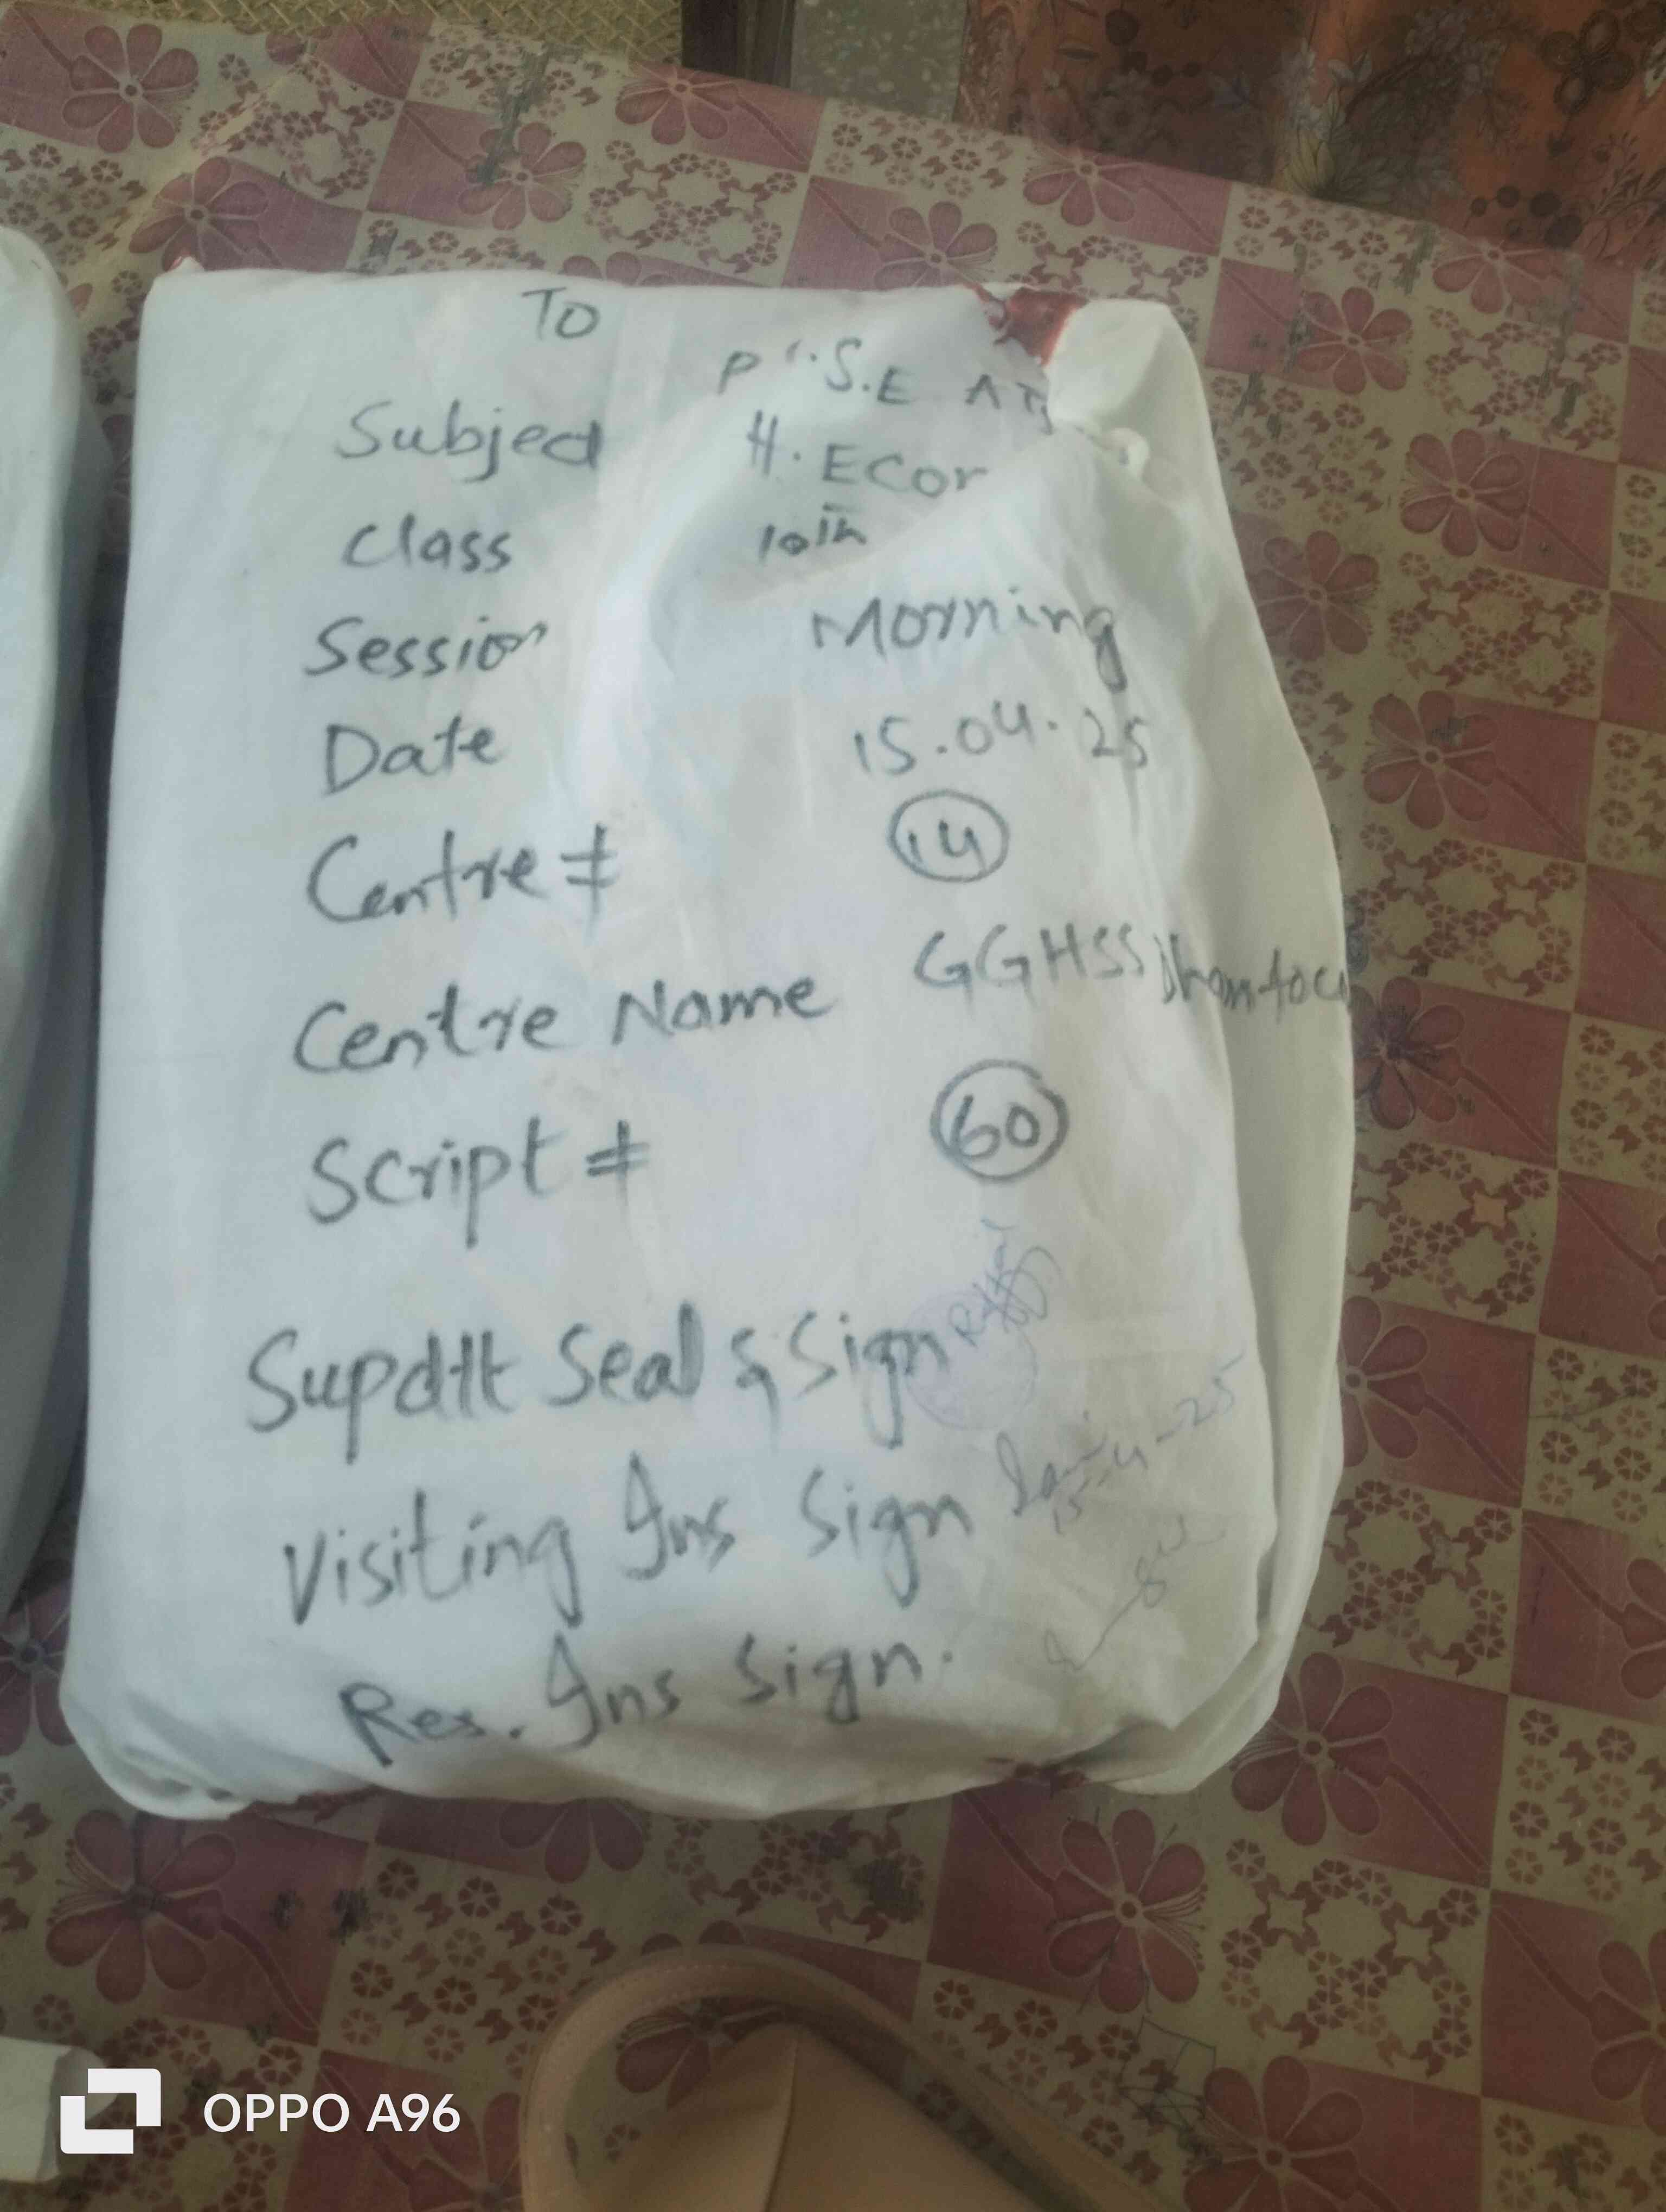 To
P.I.S.E AT
Subject H. ECon
Class 10th
Session Morning
Date 15.04.25
Centre # 14
Centre Name GGHSS
Script # 60
Supdtt Seal & Sign
Visiting Ins Sign
15-4-25
Res. Ins Sign.
OPPO A96